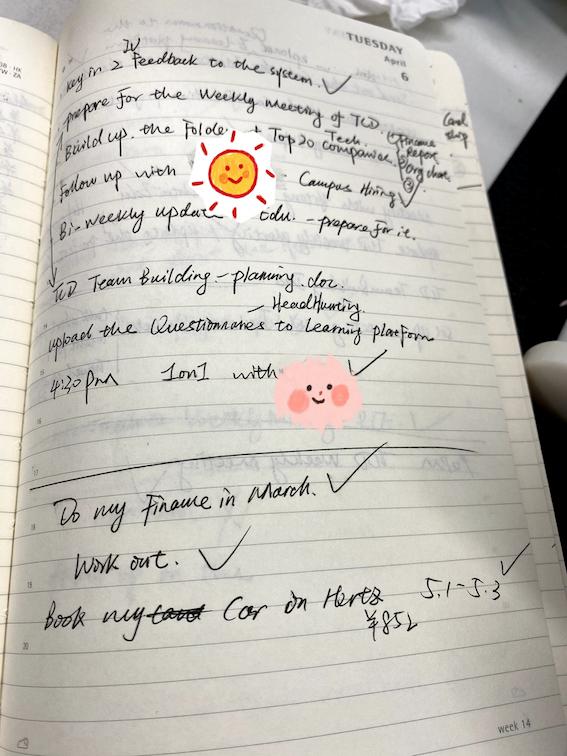 TUESDAY
April
6
IV
key in 2 Feedback to the system.
prepare for the Weekly Meeting of TCD.
Build up the Folde + Top 20 companies.
Tech.
① Finance
Report
② Org chart
③
Follow up with - Campus Hiring
Bi-Weekly updat Edu. - prepare for it.
TCD Team Building - planning. doc.
- HeadHunting.
upload the Questionnaires to Learning platform
4:30 pm 1on1 with
17
Do my Finance in March.
18
Work out.
19
Book my Car on Hertz 5.1-5.3
¥852
20
week 14